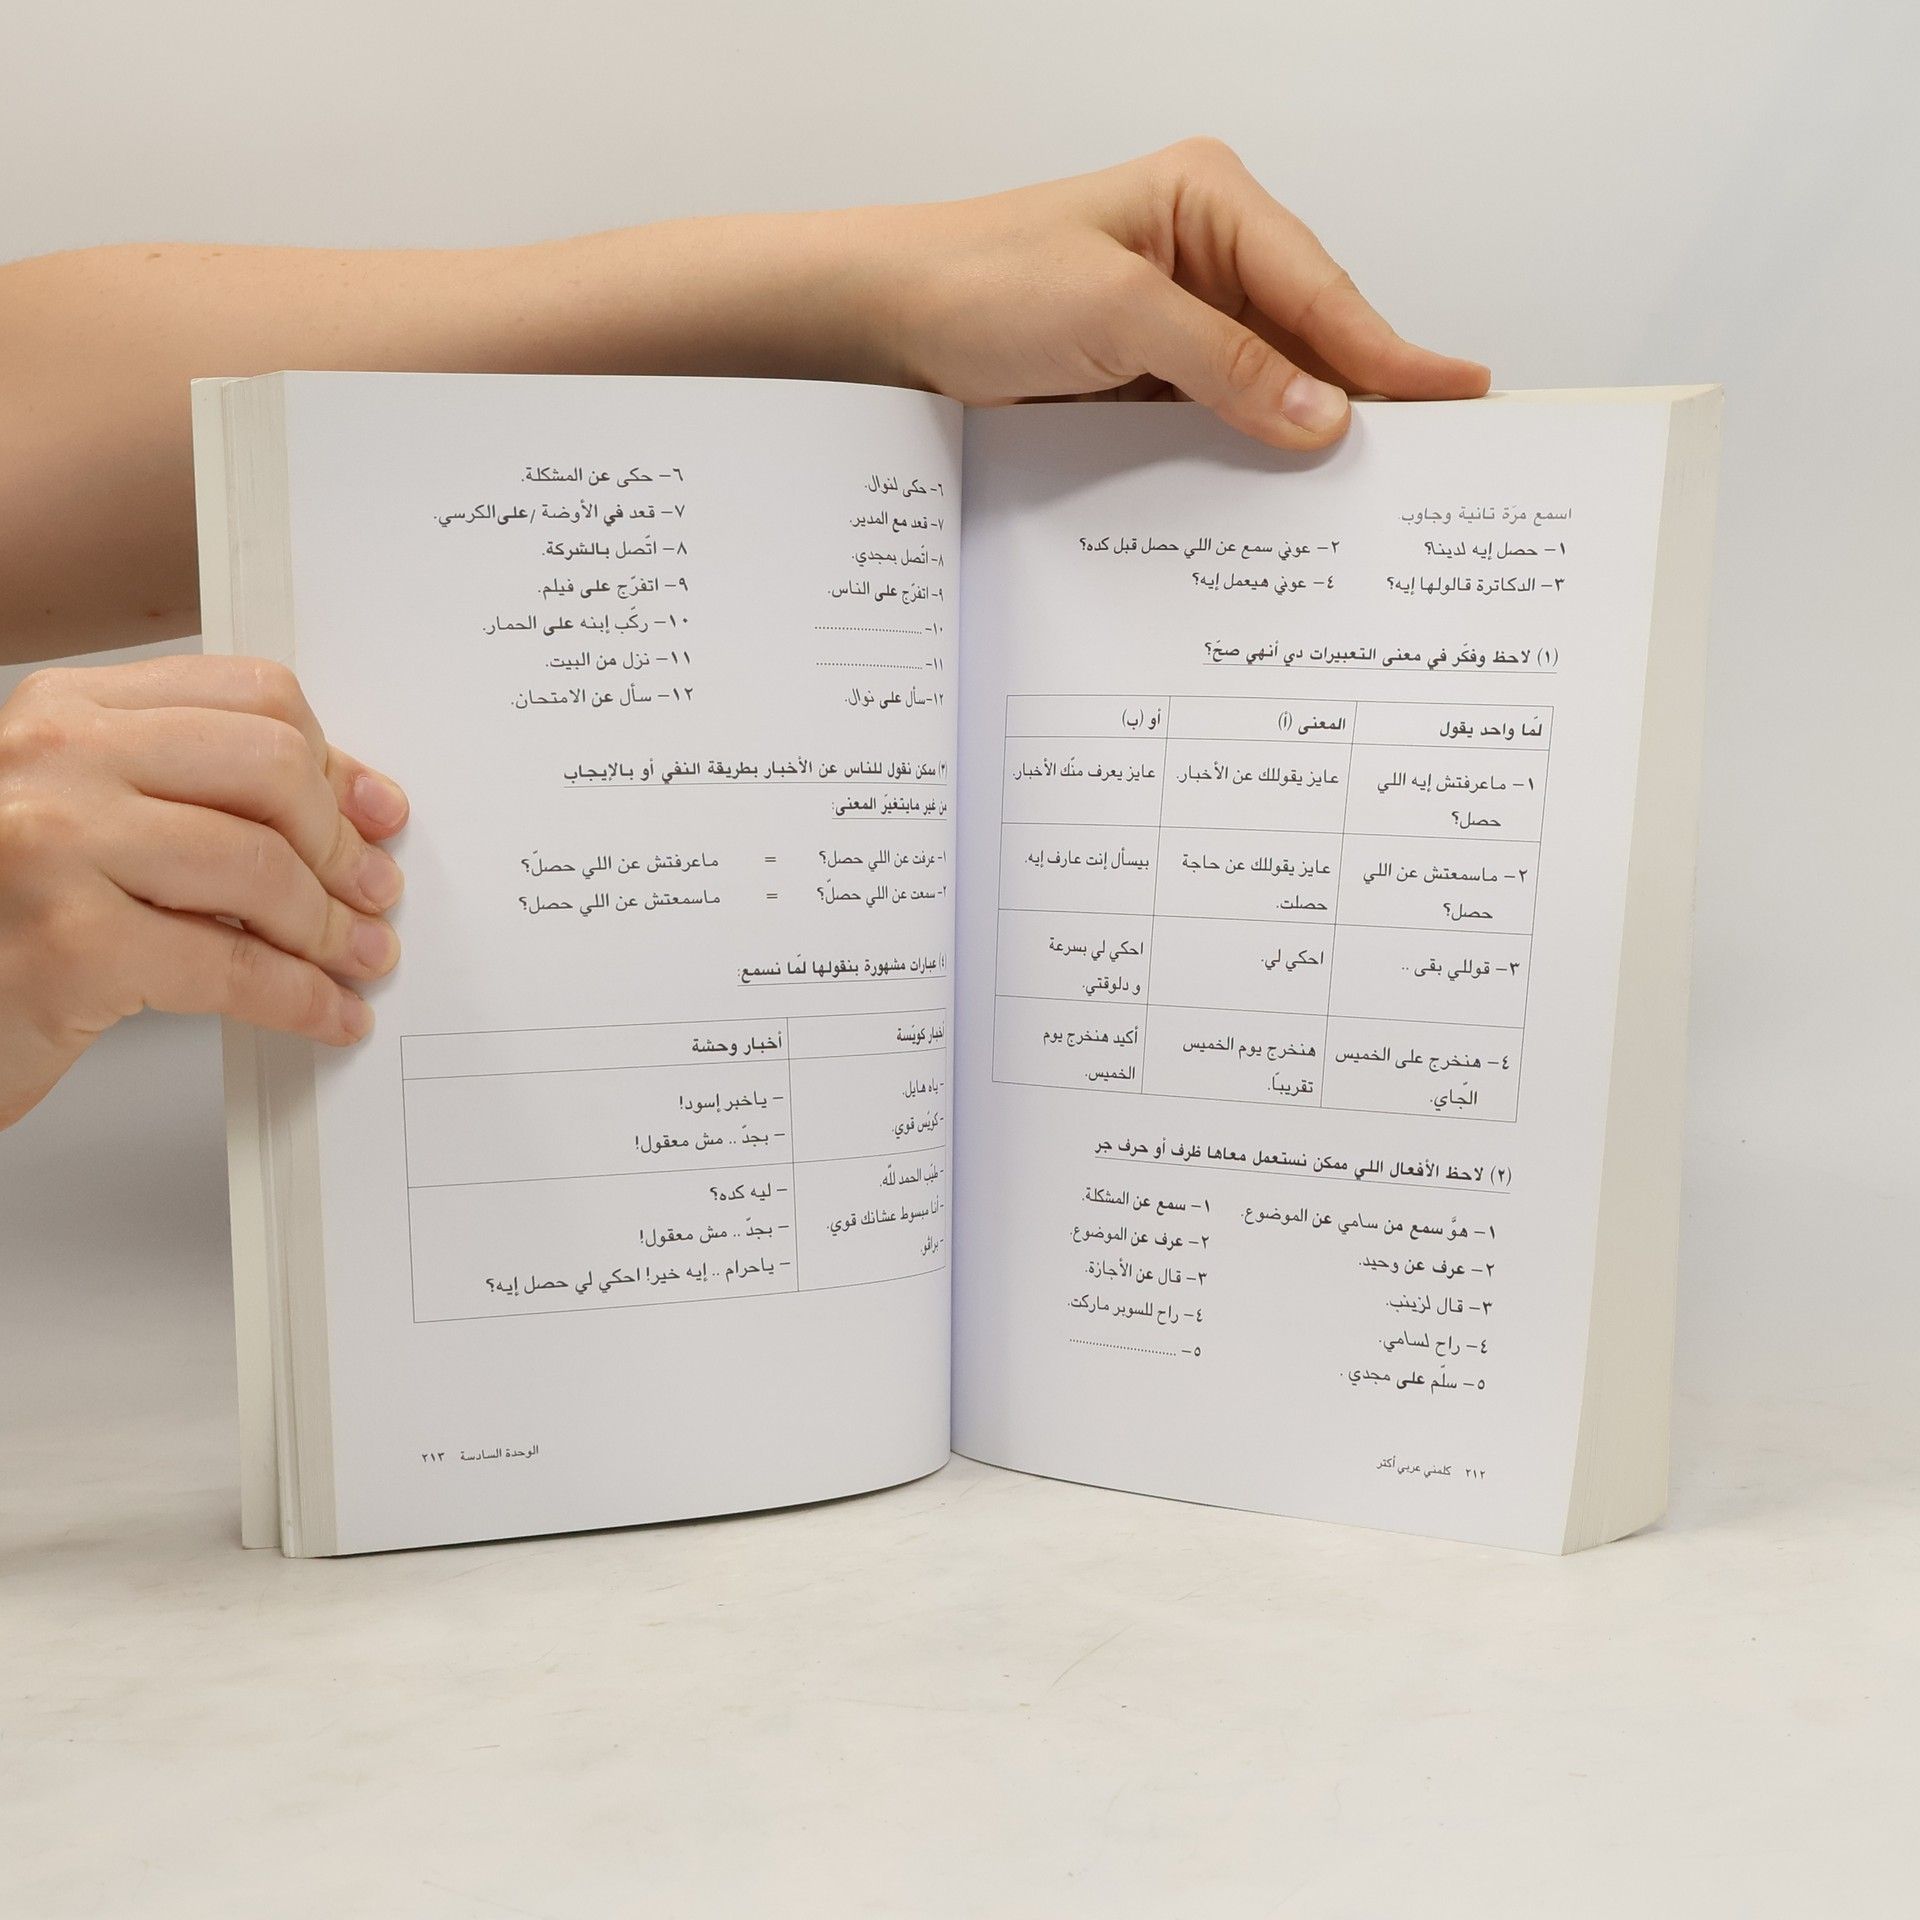 اسمع مرّة تانية وجاوب.
١– حصل إيه لدينا؟ ٢– عوني سمع عن اللي حصل قبل كده؟
٣– الدكاترة قالولها إيه؟ ٤– عوني هيعمل إيه؟
(١) لاحظ وفكّر في معنى التعبيرات دي أنهي صحّ؟
لمّا واحد يقول المعنى (أ) أو (ب)
١– ماعرفتش إيه اللي عايز يقوللك عن الأخبار. عايز يعرف منّك الأخبار.
حصل؟
٢– ماسمعتش عن اللي عايز يقوللك عن حاجة بيسأل إنت عارف إيه.
حصل؟ حصلت.
٣– قوللي بقى .. احكي لي. احكي لي بسرعة
و دلوقتي.
٤– هنخرج على الخميس هنخرج يوم الخميس أكيد هنخرج يوم
الجّاي. تقريباً. الخميس.
(٢) لاحظ الأفعال اللي ممكن نستعمل معاها ظرف أو حرف جر
١– هوَّ سمع من سامي عن الموضوع. ١– سمع عن المشكلة.
٢– عرف عن وحيد. ٢– عرف عن الموضوع.
٣– قال لزينب. ٣– قال عن الأجازة.
٤– راح لسامي. ٤– راح للسوبر ماركت.
٥– سلّم على مجدي . ٥– ..............................
٢١٢ كلمني عربي أكتر
٦– حكى لنوال. ٦– حكى عن المشكلة.
٧– قعد مع المدير. ٧– قعد في الأوضة /على الكرسي.
٨– اتّصل بمجدي. ٨– اتّصل بالشركة.
٩– اتفرّج على الناس. ٩– اتفرّج على فيلم.
١٠– .............................. ١٠– ركّب إبنه على الحمار.
١١– .............................. ١١– نزل من البيت.
١٢–سأل على نوال. ١٢– سأل عن الامتحان.
(٣) ممكن نقول للناس عن الأخبار بطريقة النفي أو بالإيجاب
من غير مايتغيّر المعنى:
١– عرفت عن اللي حصل؟ = ماعرفتش عن اللي حصلّ؟
٢– سمعت عن اللي حصلّ؟ = ماسمعتش عن اللي حصل؟
(٤) عبارات مشهورة بنقولها لمّا نسمع:
أخبار كويّسة أخبار وحشة
– ياه هايل. – ياخبر إسود!
– كويّس قوي. – بجدّ .. مش معقول!
– طيّب الحمد للّه. – ليه كده؟
– أنا مبسوط عشانك قوي. – بجدّ .. مش معقول!
– براڤو. – ياحرام .. إيه خير! احكي لي حصل إيه؟
الوحدة السادسة ٢١٣